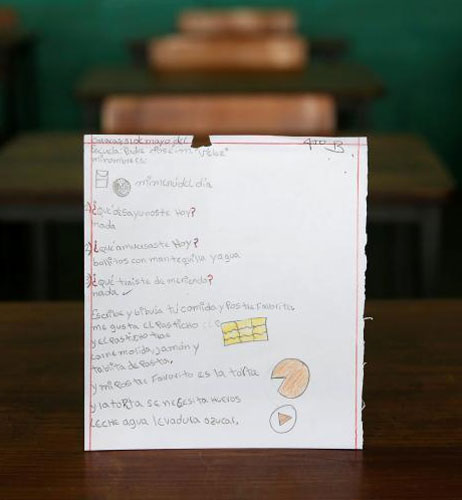 Caracas 31 de mayo del
escuela 4to B
mi nombre es:
mi menú del día
1) ¿qué desayunaste Hoy?
nada
2) ¿qué almorzaste Hoy?
bollitos con mantequilla y agua
3) ¿qué traiste de merienda?
nada
Escribe y dibuja tú comida y Postre Favorito.
me gusta el Pasticho
y el Pasticho trae
carne molida, jamón y
tablita de Pasta.
y mi Postre Favorito es la torta
y la torta se nesesita huevos
Leche agua levadura azucar.